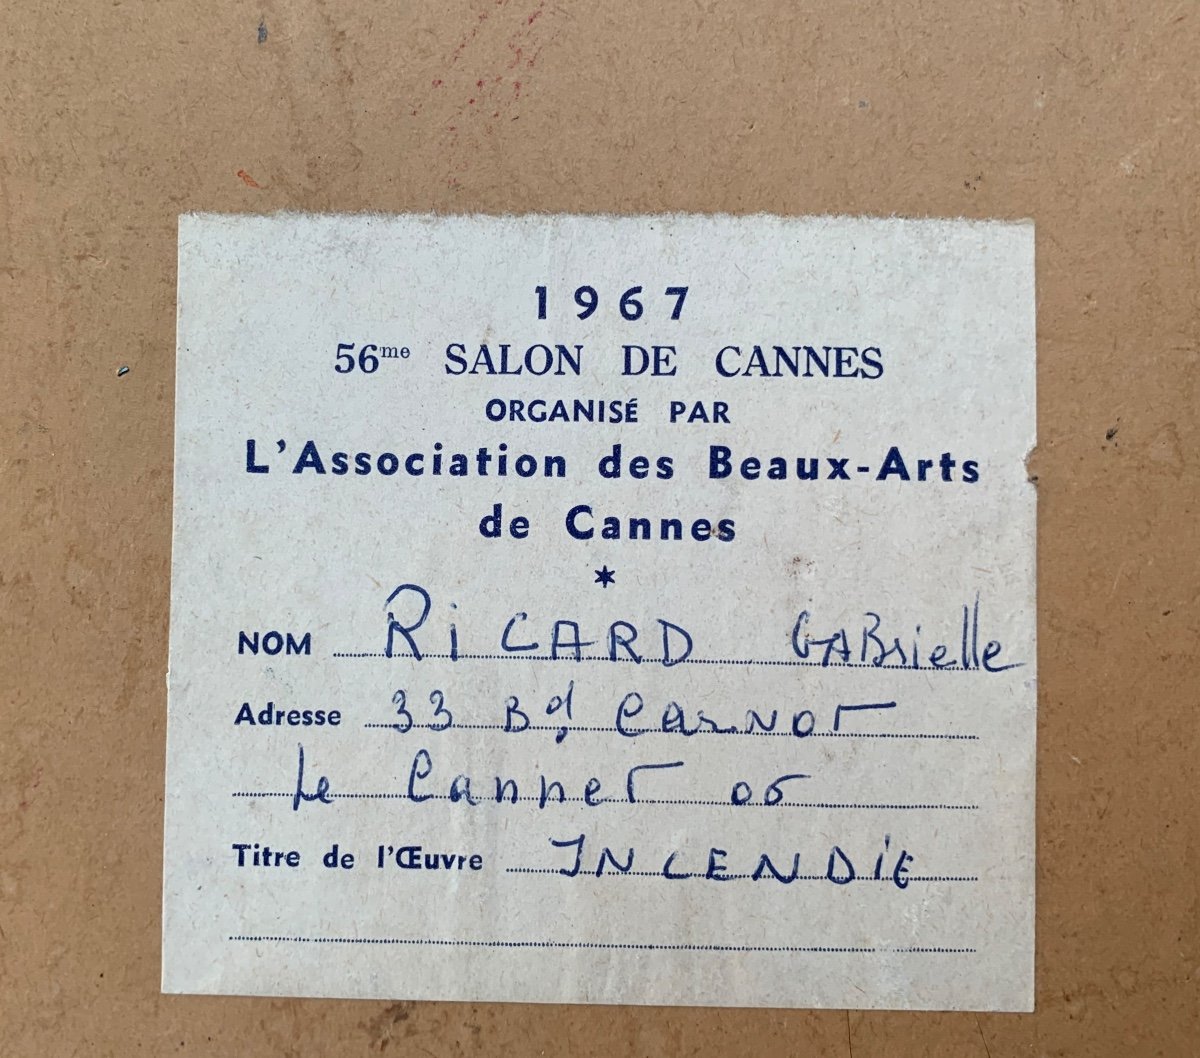 1967
56me SALON DE CANNES
ORGANISÉ PAR
L'Association des Beaux-Arts
de Cannes
*
NOM RiCARD GABrielle
Adresse 33 Bd Carnot
Le Cannet 06
Titre de l'Œuvre INCENDiE